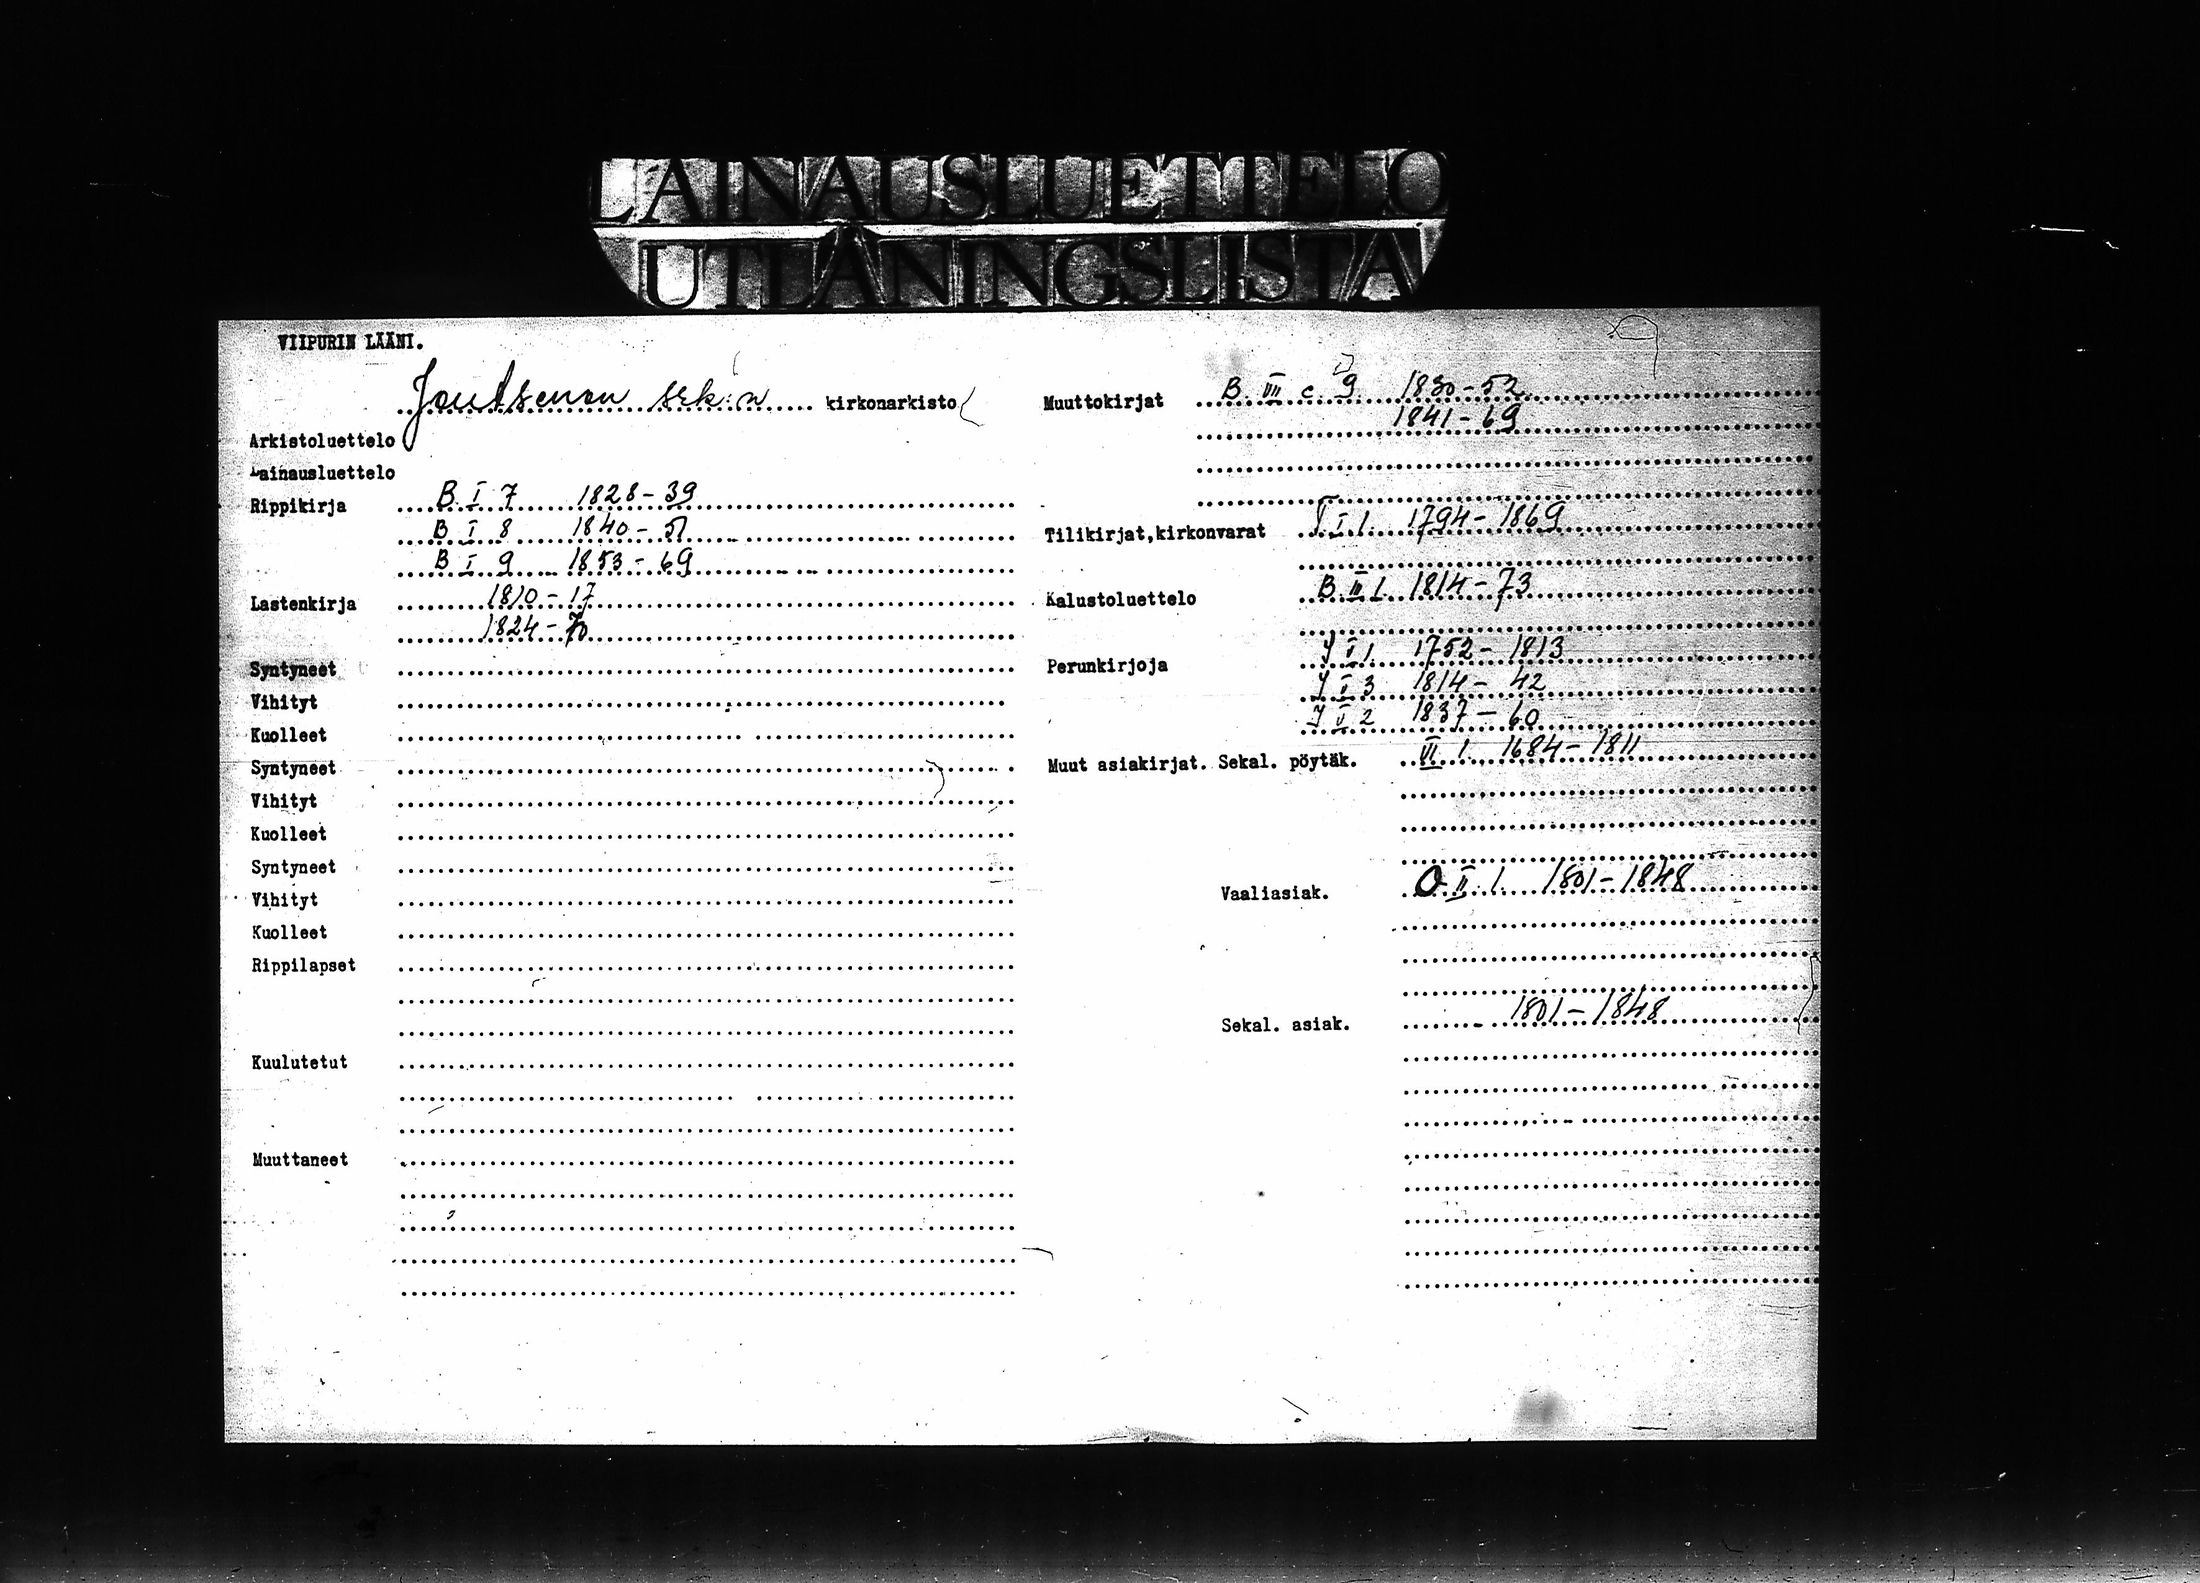 LAINAUSLUETTELO
UTLÅNINGSLISTA
VIIPURIN LÄÄNI.
Joutsenon srk:n kirkonarkisto
Arkistoluettelo
Lainausluettelo
Rippikirja B I 7 1828-39
B I 8 1840-51
B I 9 1853-69
Lastenkirja 1810-17
1824-70
Syntyneet
Vihityt
Kuolleet
Syntyneet
Vihityt
Kuolleet
Syntyneet
Vihityt
Kuolleet
Rippilapset
Kuulutetut
Muuttaneet
Muuttokirjat B III c 9 1830-52
1841-69
Tilikirjat,kirkonvarat I 1 1794-1869
Kalustoluettelo B II 1 1814-73
Perunkirjoja J I 1 1752-1813
J I 3 1814-42
J II 2 1837-60
Muut asiakirjat. Sekal. pöytäk. VI 1 1684-1811
Vaaliasiak. O II 1 1801-1848
Sekal. asiak. 1801-1848